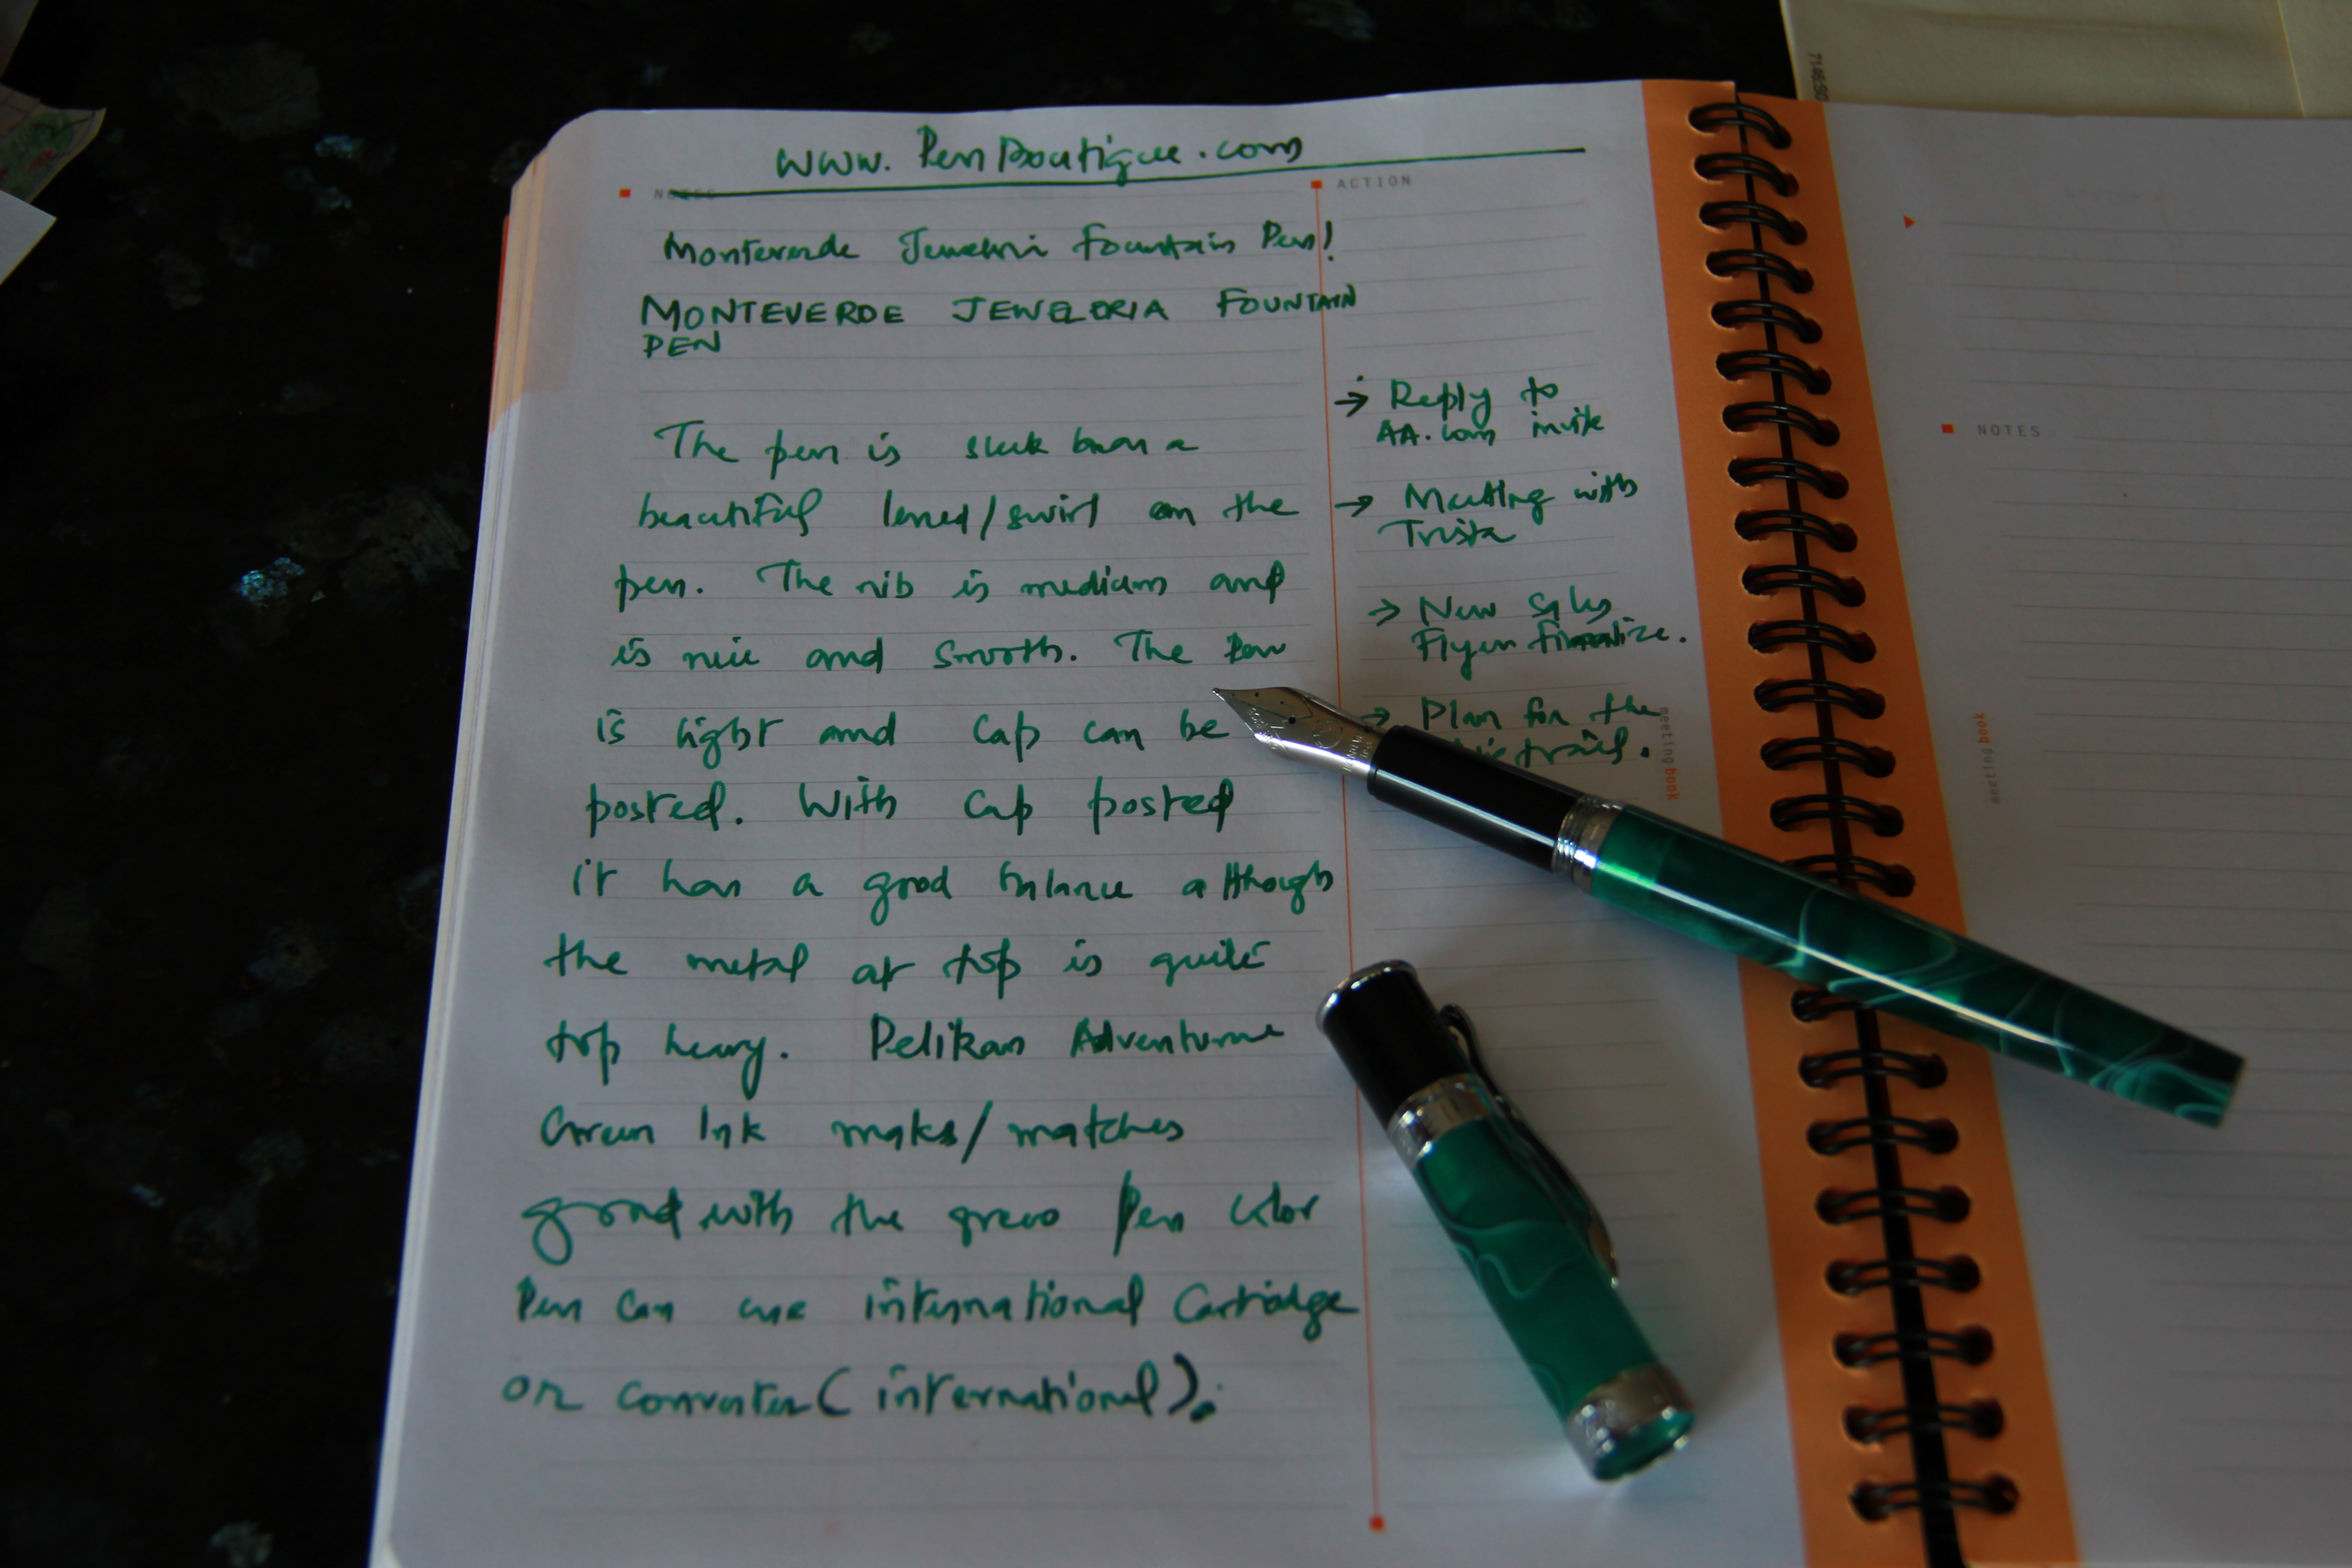 www.PenBoutique.com
NOTES
ACTION
Monteverde Jewelria Fountain Pen!
MONTEVERDE JEWELERIA FOUNTAIN
PEN
The pen is sleek has a
beautiful lined/swirl on the
pen. The nib is medium and
is nice and smooth. The Pen
is light and Cap can be
posted. With Cap posted
it has a good balance although
the metal at top is quite
top heavy. Pelikan Adventurine
Green Ink makes/matches
good with the green Pen color
Pen can use international Cartridge
or converter (international).
→ Reply to
AA.com invite
→ Meeting with
Trista
→ New Sales
Flyer finalize.
→ Plan for the
meeting book
NOTES
meeting book
714650